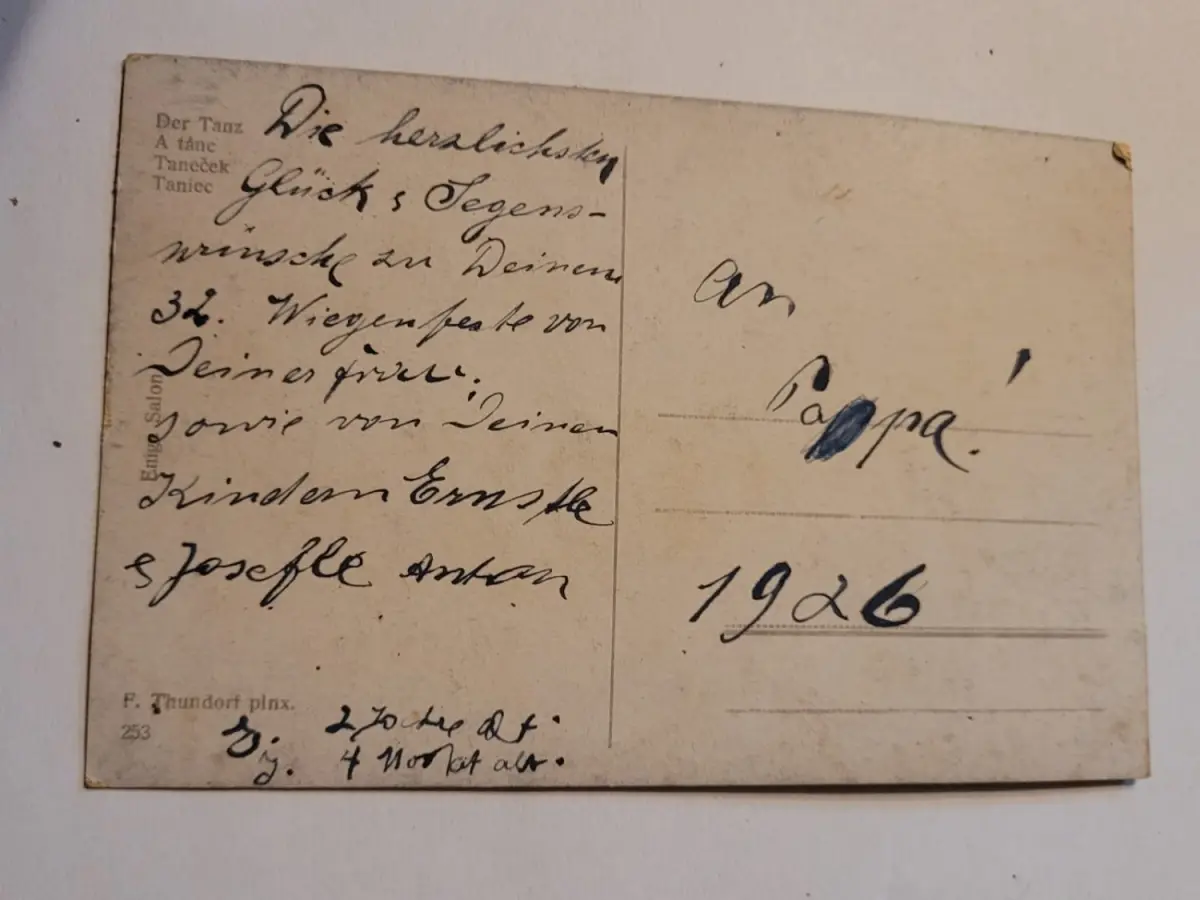 Der Tanz
A tánc
Taneček
Taniec
Die herzlichsten
Glück & Segens-
wünsche zu Deinem
32. Wiegenfeste von
Deiner Frau.
sowie von Deinen
Kindern Ernstle
& Josefle Anton
An
Pappa!
1926
Enige Salon
F. Thundorf pinx.
253
2 Jahre
4 Monat alt.